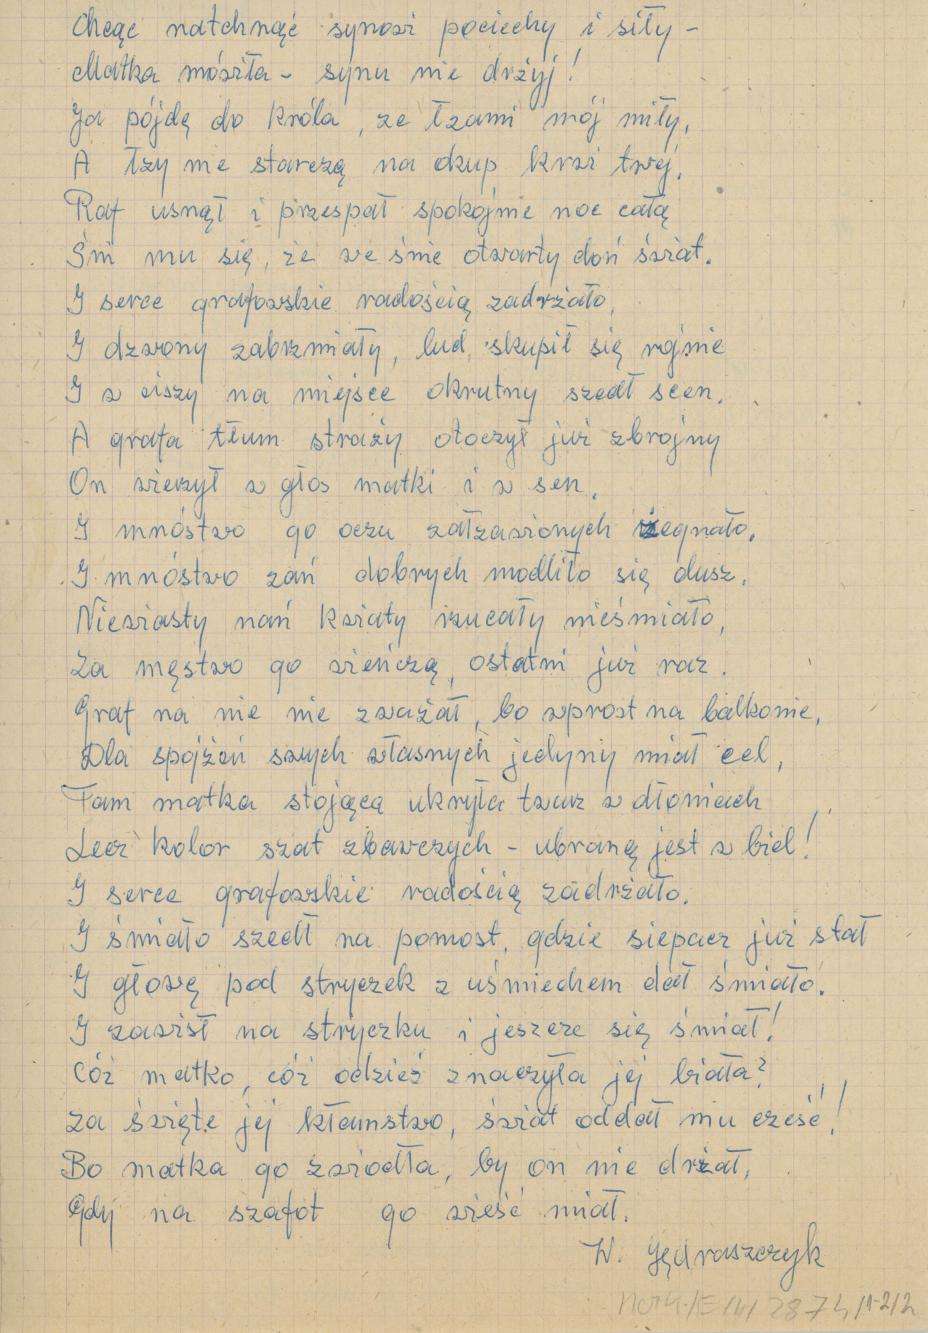 Chcąc natchnąć synowi pociechy i siły -
Matka mówiła - synu nie drżyj!
Ja pójdę do króla, ze łzami mój miły,
A łzy me starczą na okup krwi twej.
Raf usnął i przespał spokojnie noc całą
Śni mu się, że we śnie otwarty doń świat.
I serce grafowskie radością zadrżało,
I dzwony zabrzmiały, lud, skupił się rojnie
I w ciszy na miejsce okrutny szedł scen.
A grafa tłum straży otoczył już zbrojny
On wierzył w głos matki i w sen.
I mnóstwo go oczu załzawionych żegnało.
I mnóstwo zań dobrych modliło się dusz.
Niewiasty nań kwiaty rzucały nieśmiało,
Za męstwo go wieńczą, ostatni już raz.
Graf na nie nie zważał, bo wprost na balkonie,
Dla spojżeń swych własnych jedyny miał cel,
Tam matka stojącą ukryła twarz w dłoniach
Lecz kolor szat zbawczych - ubraną jest w biel!
I serce grafowskie radością zadrżało.
I śmiało szedł na pomost, gdzie siepacz już stał
I głowę pod stryczek z uśmiechem dał śmiało.
I zawisł na stryczku i jeszcze się śmiał!
Cóż matko, cóż odzież znaczyła jej biała?
Za święte jej kłamstwo, świat oddał mu cześć!
Bo matka go zwiodła, by on nie drżał,
Gdy na szafot go wieść miał.
W. Jędraszczyk
2874/1-2/2